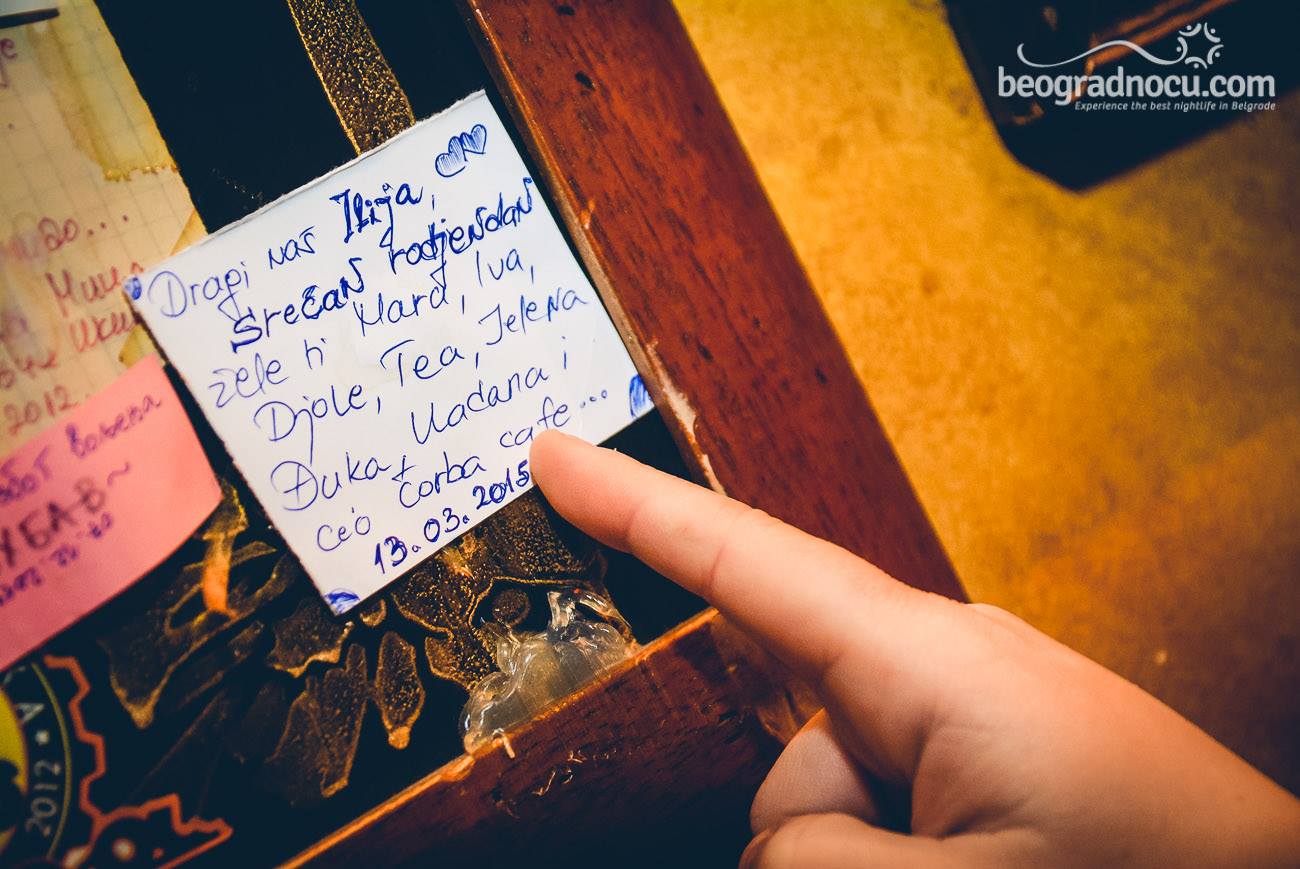 beogradnocu.com
Experience the best nightlife in Belgrade
Dragi naš Ilija,
Srećan rodjendan
žele ti Mara, Iva,
Djole, Tea, Jelena
Vladana i
Đuka +
ceo Čorba cafe...
13.03.2015
2012.
2012 ★ A